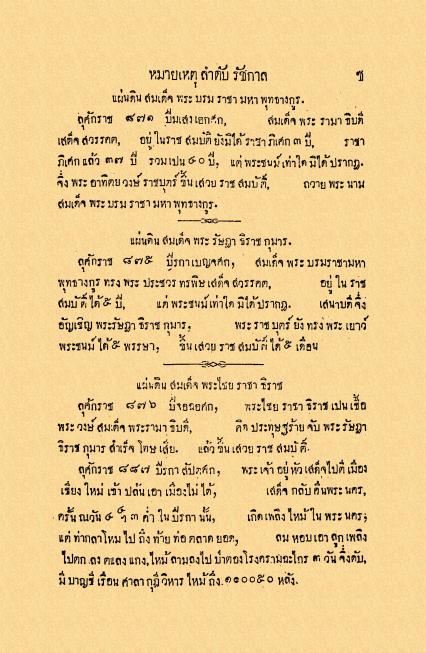 หมายเหตุ ลำดับ รัชกาล ช
แผ่นดิน สมเด็จ พระ บรม ราชา มหา พุทธางกูร.
จุศักราช ๘๗๑ ปีมเสงเอกศก, สมเด็จ พระ รามา ธิบดี
เสด็จ สวรรคต, อยู่ ในราช สมบัติ ยังมิได้ ราชา ภิเศก ๓ ปี, ราชา
ภิเศก แล้ว ๓๗ ปี รวม เปน ๔๐ ปี, แต่ พระชนม์ เท่าใด มิได้ ปรากฏ.
จึ่ง พระ อาทิตย วงษ์ ราชบุตร์ ขึ้น เสวย ราช สมบัติ, ถวาย พระ นาม
สมเด็จ พระ บรม ราชา มหา พุทธางกูร.
แผ่นดิน สมเด็จ พระ รัษฎา ธิราช กุมาร.
จุศักราช ๘๗๕ ปีรกา เบญจศก, สมเด็จ พระ บรมราชามหา
พุทธางกูร ทรง พระ ประชวร ทรพิษ เสด็จ สวรรคต, อยู่ ใน ราช
สมบัติ ได้ ๕ ปี, แต่ พระชนม์ เท่าใด มิได้ ปรากฏ. เสนาบดี จึ่ง
อัญเชิญ พระรัษฎา ธิราช กุมาร, พระ ราช บุตร์ ยัง ทรง พระ เยาว์
พระชนม์ ได้ ๕ พรรษา, ขึ้น เสวย ราช สมบัติ ได้ ๕ เดือน
แผ่นดิน สมเด็จ พระไชย ราชา ธิราช
จุศักราช ๘๗๖ ปีจอฉอศก, พระไชย ราชา ธิราช เปน เชื้อ
พระ วงษ์ สมเด็จ พระรามา ธิบดี, คิด ประทุษฐร้าย จับ พระ รัษฎา
ธิราช กุมาร สำเร็จ โทษ เสีย. แล้ว ขึ้น เสวย ราช สมบัติ.
จุศักราช ๘๘๗ ปีรกา สัปตศก, พระ เจ้า อยู่ หัว เสด็จไปตี เมือง
เชียง ใหม่ เข้า ปล้น เอา เมือง ไม่ ได้, เสด็จ กลับ คืนพระ นคร,
ครั้น ณวัน ๓ ค่ำ ใน ปีรกา นั้น, เกิด เพลิง ไหม้ ใน พระ นคร;
แต่ ท่ากลาโหม ไป ถึง ท้าย ท่อ ตลาด ยอด, ลม หอบ เอา ลูก เพลิง
ไปตก ลง ตแลง แกง, ไหม้ ลามลงไป ป่าตองโรงครามฉะไกร ๓ วัน จึ่งดับ,
มี บาญชี เรือน ศาลา กุฎี วิหาร ไหม้ ถึง. ๑๐๐๐๕๐ หลัง.